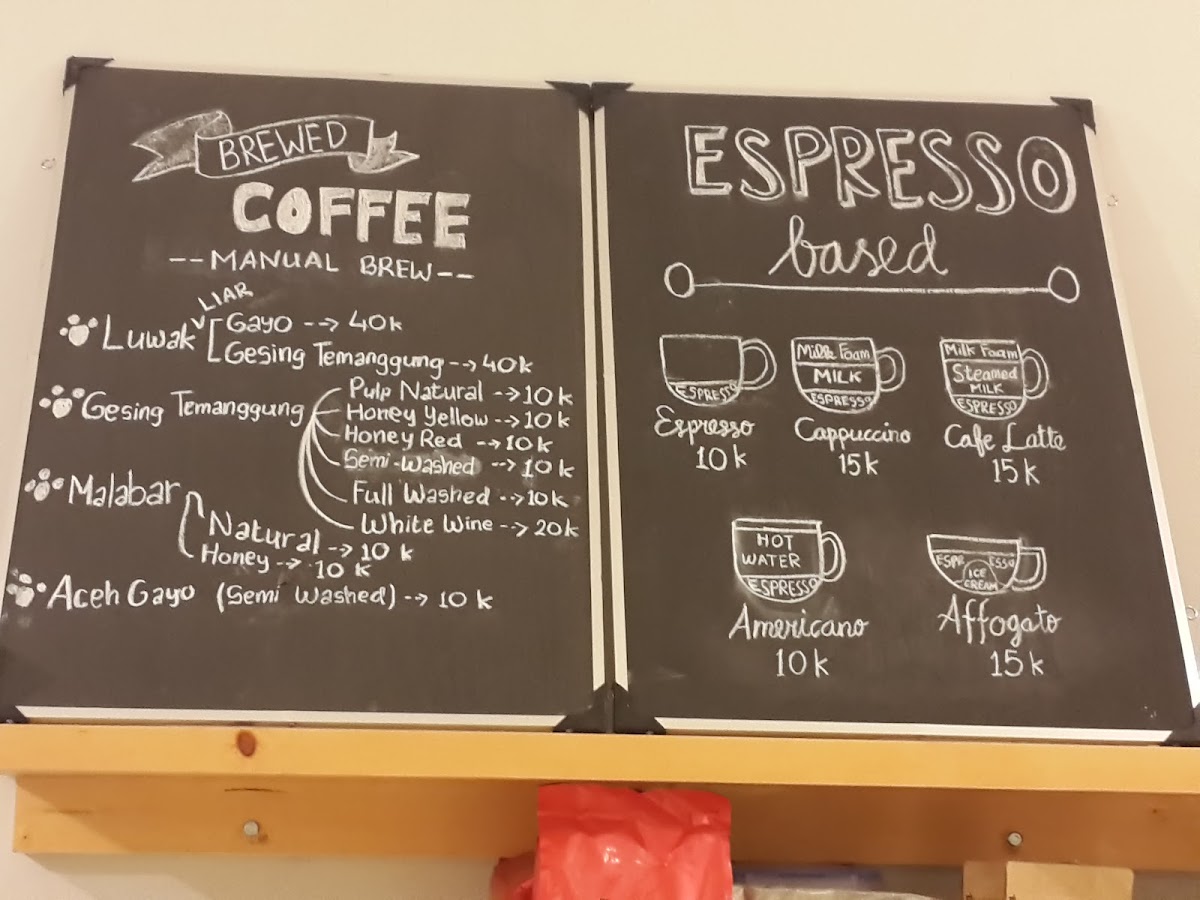 BREWED
COFFEE
--MANUAL BREW--
LIAR
Luwak
Gayo --> 40k
Gesing Temanggung --> 40k
Gesing Temanggung
Pulp Natural --> 10k
Honey Yellow --> 10k
Honey Red --> 10k
Semi-Washed --> 10k
Full Washed --> 10k
White Wine --> 20k
Malabar
Natural --> 10 k
Honey --> 10k
Aceh Gayo (Semi Washed) --> 10 k
ESPRESSO
based
ESPRESSO
Espresso
10k
Milk Foam
MILK
ESPRESSO
Cappuccino
15k
Milk Foam
Steamed
MILK
ESPRESSO
Cafe Latte
15k
HOT
WATER
ESPRESSO
Americano
10k
ESPRESSO
ICE
CREAM
Affogato
15k